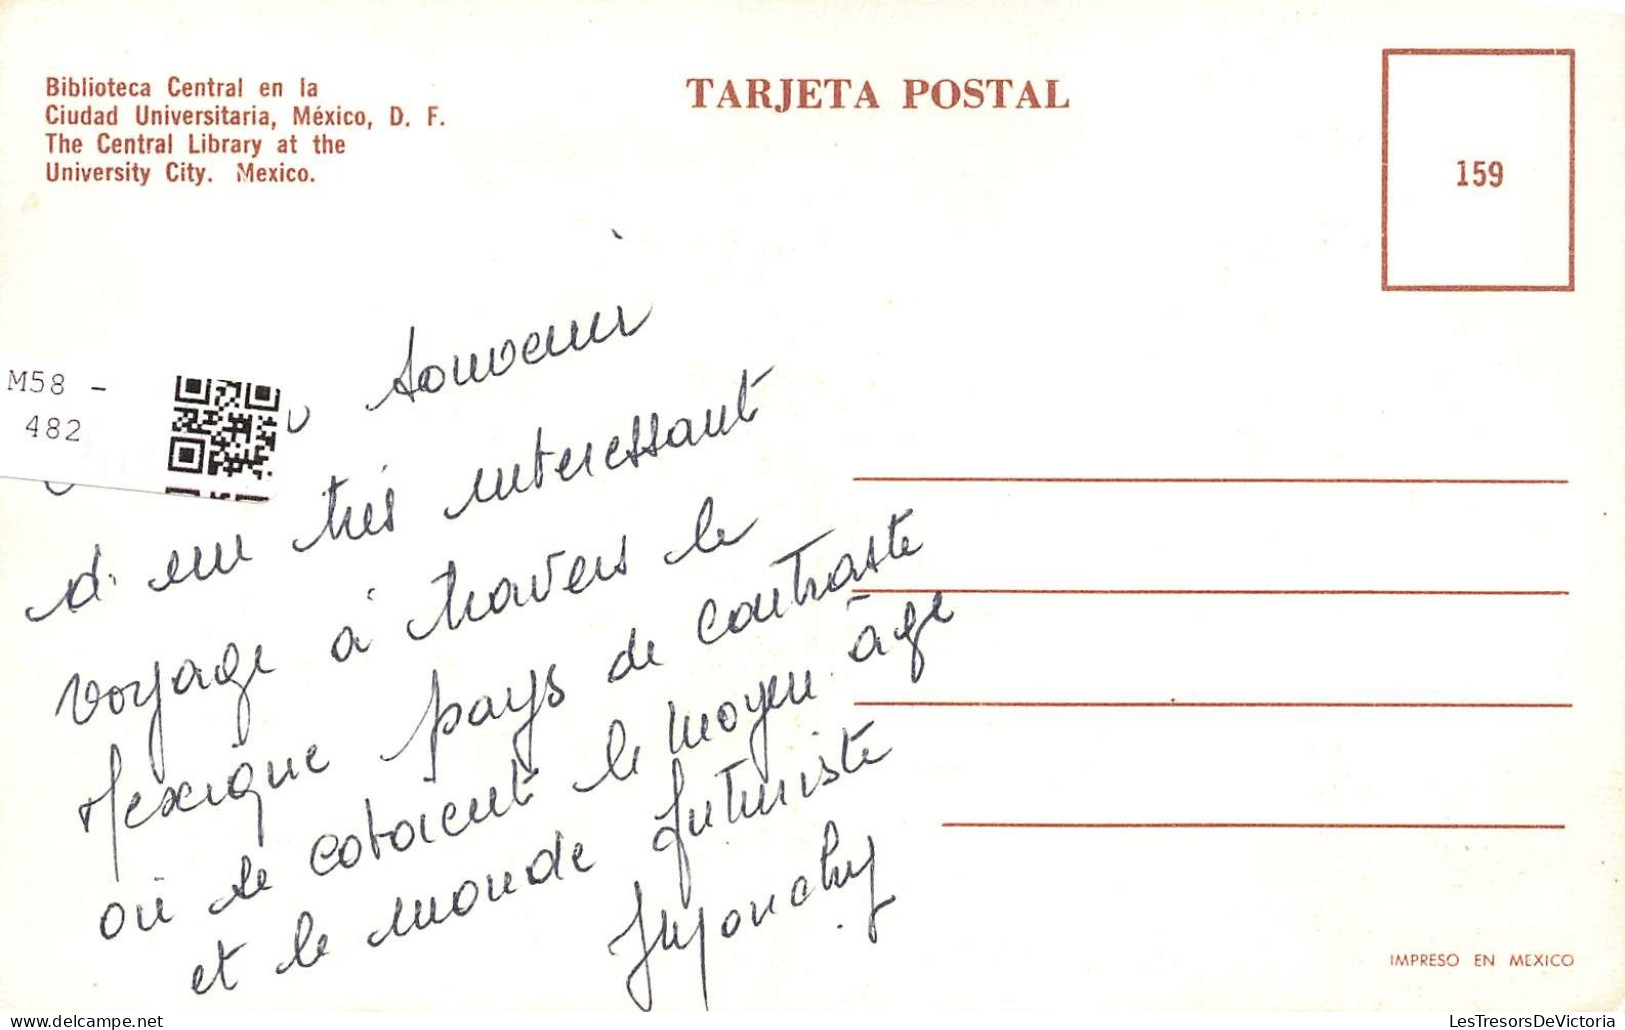 Biblioteca Central en la
Ciudad Universitaria, México, D. F.
The Central Library at the
University City. Mexico.
TARJETA POSTAL
159
M58 -
482
souvenir
d'un très interessant
voyage à travers le
Mexique pays de contraste
où se cotoient le moyen âge
et le monde futuriste
IMPRESO EN MEXICO
delcampe.net
LesTresorsDeVictoria